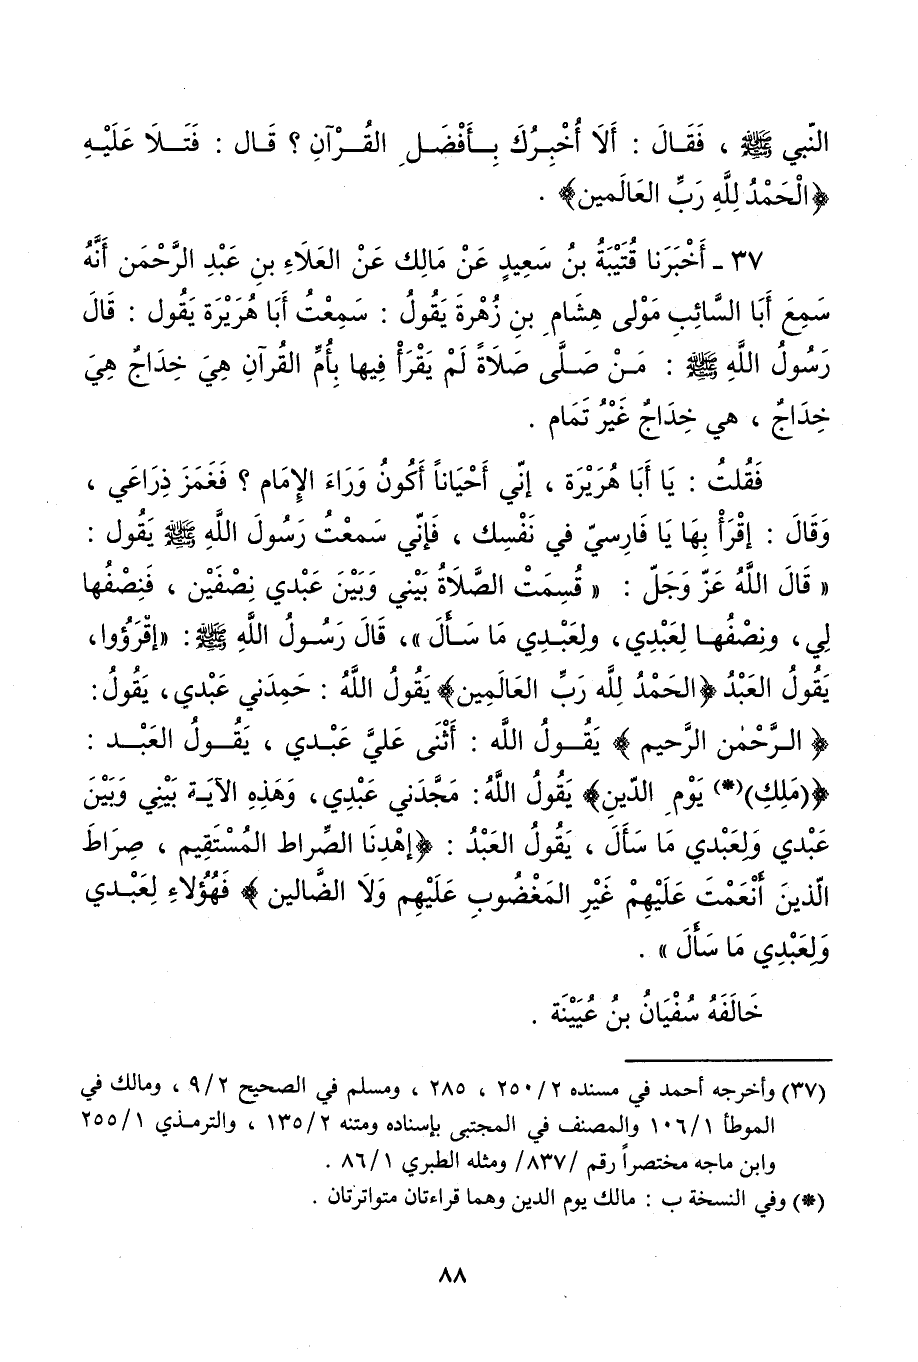 النّبي ﷺ ، فَقَالَ : أَلَا أُخْبِرُكَ بِأَفْضَلِ القُرْآنِ ؟ قَال : فَتَلَا عَلَيْهِ
﴿الْحَمْدُ لِلَّهِ رَبِّ العَالَمين﴾ .
٣٧ ـ أَخْبَرَنا قُتَيْبَةُ بنُ سَعِيدٍ عَنْ مَالِك عَنْ العَلَاءِ بنِ عَبْدِ الرَّحْمَن أَنَّهُ
سَمِعَ أَبَا السَّائِبِ مَوْلى هِشَامِ بنِ زُهْرةَ يَقُولُ : سَمِعْتُ أبَا هُرَيْرَة يَقُول : قَالَ
رَسُولُ اللَّهِ ﷺ : مَنْ صَلَّى صَلَاةً لَمْ يَقْرَأْ فِيها بِأُمِّ القُرآنِ هِيَ خِدَاجٌ هِيَ
خِدَاجٌ ، هي خِدَاجٌ غَيْرُ تَمَام .
فَقُلتُ : يَا أَبَا هُرَيْرَة ، إنّي أَحْيَاناً أَكُونُ وَرَاءَ الإِمَام ؟ فَغَمَزَ ذِرَاعَي ،
وَقَالَ : إقْرَأْ بِهَا يَا فَارِسيّ في نَفْسِك ، فَإنّي سَمعْتُ رَسُولَ اللَّهِ ﷺ يَقُول :
« قَالَ اللَّهُ عَزّ وَجَلّ : « قُسِمَتْ الصَّلَاةُ بَيْني وَبَيْنَ عَبْدي نِصْفَيْن ، فَنِصْفُها
لِي ، وَنِصْفُها لِعَبْدِي، ولِعَبْدِي مَا سَأَلَ »، قَالَ رَسُولُ اللَّهِ ﷺ: «إقْرَؤُوا،
يَقُولُ العَبْدُ ﴿الحَمْدُ لِلَّه رَبِّ العَالَمِين﴾ يَقُولُ اللَّهُ : حَمِدَني عَبْدي، يَقُولُ:
﴿ الرَّحْمٰن الرَّحيم ﴾ يَقُولُ الله : أَثْنَى عَليَّ عَبْدي ، يَقُولُ العَبْد :
﴿(مَلِكِ)(*) يَوْمِ الدّينِ﴾ يَقُولُ اللَّهُ: مَجَّدَني عَبْدِي، وَهَذِهِ الآيَة بَيْنِي وَبَيْنَ
عَبْدي وَلِعَبْدي مَا سَأَلَ ، يَقُولُ العَبْدُ : ﴿إهْدِنَا الصِّراط المُسْتَقِيم ، صِرَاطَ
الّذينَ أَنْعَمْتَ عَلَيْهِمْ غَيْرِ المَغْضُوبِ عَلَيْهِم وَلَا الضَّالين ﴾ فَهُؤُلاءِ لِعَبْدي
وَلِعَبْدِي مَا سَأَلَ » .
خَالَفَهُ سُفْيَانُ بنُ عُيَيْنَة .
(٣٧) وأخرجه أحمد في مسنده ٢/ ٢٥٠ ، ٢٨٥ ، ومسلم في الصحيح ٩/٢ ، ومالك في
الموطأ ١٠٦/١ والمصنف في المجتبى بإسناده ومتنه ١٣٥/٢ ، والترمذي ٢٥٥/١
وابن ماجه مختصراً رقم /٨٣٧/ ومثله الطبري ٨٦/١ .
(*) وفي النسخة ب : مالك يوم الدين وهما قراءتان متواترتان .
٨٨